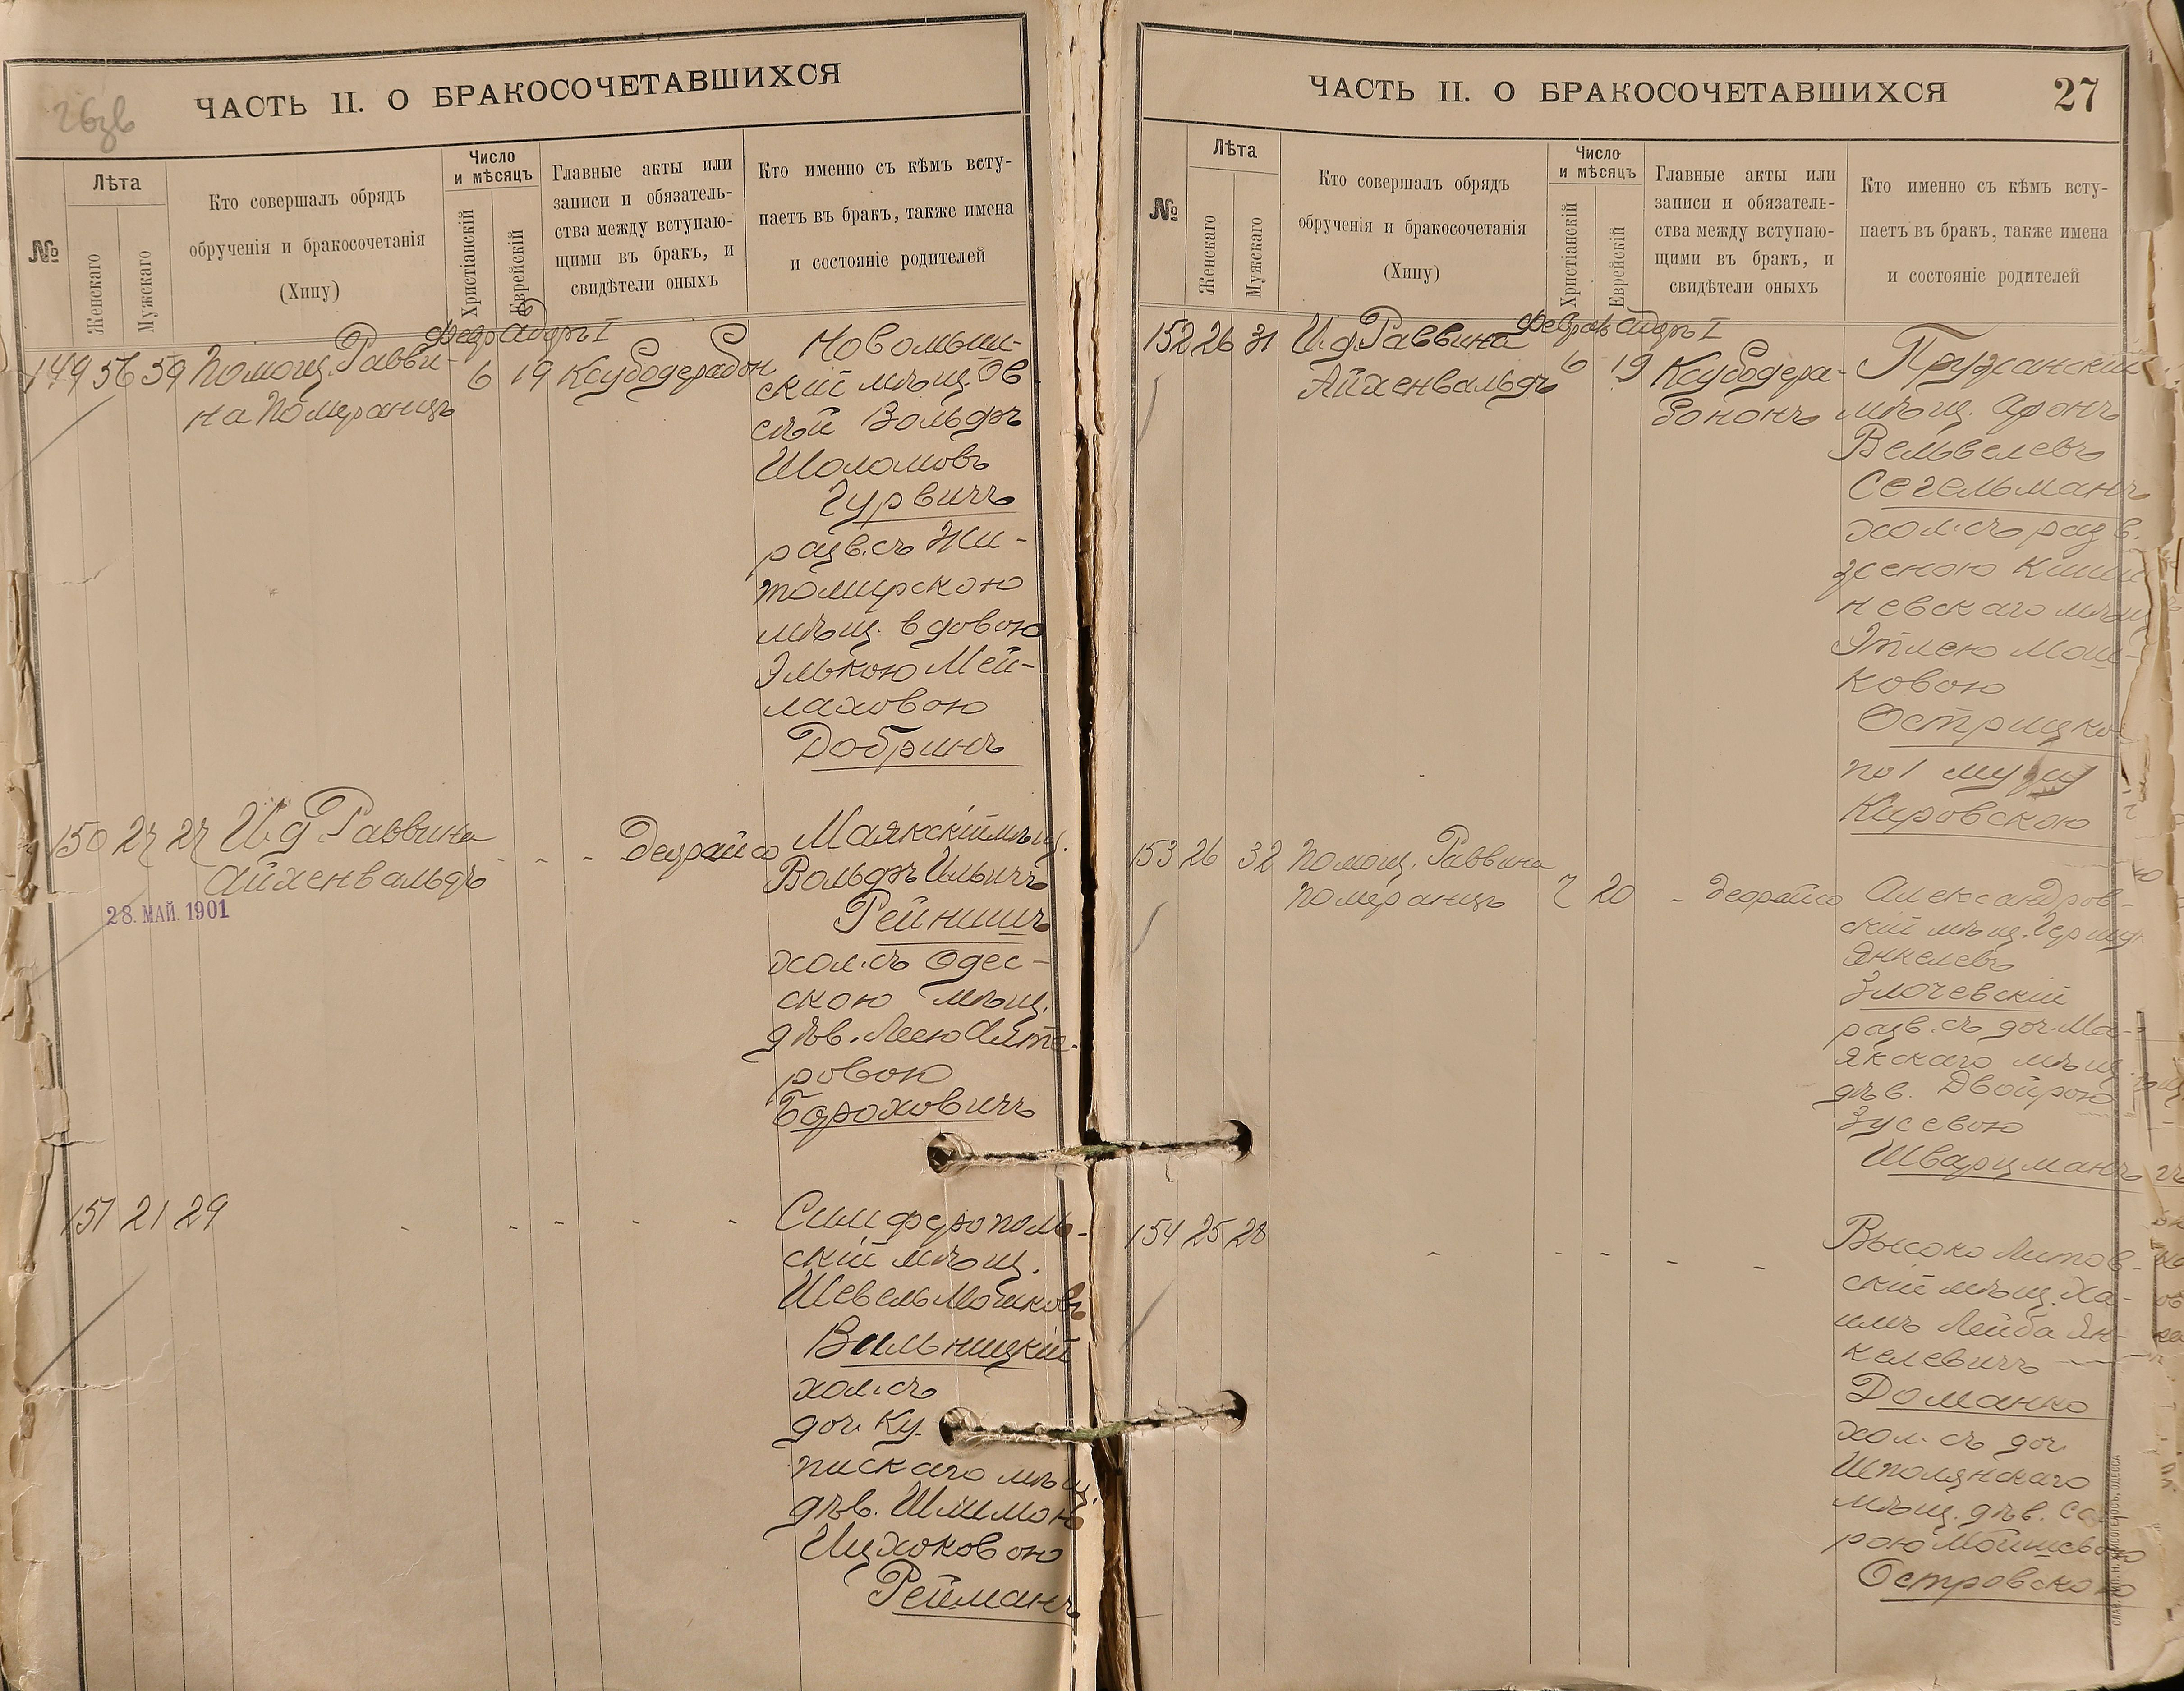 ЧАСТЬ II. О БРАКОСОЧЕТАВШИХСЯ
№
Лѣта
Женскаго
Мужскаго
Кто совершалъ обрядъ
обрученія и бракосочетанія
(Хипу)
Число
и мѣсяцъ
Христіанскій
Еврейскій
Главные акты или
записи и обязатель-
ства между вступаю-
щими въ бракъ, и
свидѣтели оныхъ
Кто именно съ кѣмъ всту-
паетъ въ бракъ, также имена
и состояніе родителей
149 56 59 Помощ. Равви-
на Померанцъ
Февр Адръ I
6 19
Новомыш-
скій мѣщ. Ов
сѣй Вольфъ
Шоломовъ
Гурвичъ
разв. съ Жи-
томирскою
мѣщ. вдовою
Элькою Мей-
лаховою
Добринъ
150 27 27 И. д. Раввина
Айхенвальдъ
28. МАЙ. 1901
- - -
Маякскій мѣщ.
Вольфъ Ильичъ
хол. съ Одес-
скою мѣщ.
дѣв. Леею Альте-
ровою
Бороховичъ
151 21 29 - - - - -
Симферополь-
скій мѣщ.
Шевель Мошковъ
Вильницкій
хол. съ
доч. Ку-
пискаго мѣщ.
дѣв.
Ицхоковою
Рейманъ
ЧАСТЬ II. О БРАКОСОЧЕТАВШИХСЯ
27
№
Лѣта
Женскаго
Мужскаго
Кто совершалъ обрядъ
обрученія и бракосочетанія
(Хипу)
Число
и мѣсяцъ
Христіанскій
Еврейскій
Главные акты или
записи и обязатель-
ства между вступаю-
щими въ бракъ, и
свидѣтели оныхъ
Кто именно съ кѣмъ всту-
паетъ въ бракъ, также имена
и состояніе родителей
152 26 31 И. д. Раввина
Айхенвальдъ
Февраль Адръ I
6 19
Пружанскій
мѣщ. Аронъ
Вельвелевъ
Сегельманъ
хол. съ разв.
женою Киши
невскаго мѣщ
Этлею Мош-
ковою
по 1 мужу
Кировскою
153 26 32 Помощ. Раввина
Померанцъ
7 20 -
Александров-
скій мѣщ.
Янкелевъ
Злочевскій
разв. съ доч. Ма-
якскаго мѣщ.
дѣв. Двойрою
Зусевою
Шварцманъ
154 25 28 - - - - -
Высоко Литов-
скій мѣщ. Ха-
имъ Лейба Ян-
келевичъ
Доманко
хол. съ доч.
Шполянскаго
мѣщ. дѣв. Са
рою Мойшевою
Островскою